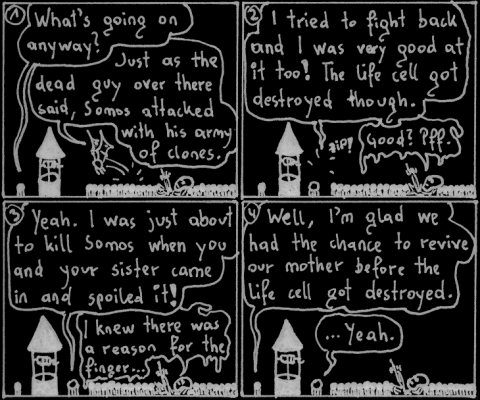 1
What's going on
anyway?
Just as the
dead guy over there
said, Somos attacked
with his army
of clones.
2
I tried to fight back
and I was very good at
it too! The life cell got
destroyed though.
ZIP!
Good? Pff.
3
Yeah. I was just about
to kill Somos when you
and your sister came
in and spoiled it!
I knew there was
a reason for the
finger...
4
Well, I'm glad we
had the chance to revive
our mother before the
life cell got destroyed.
...Yeah.